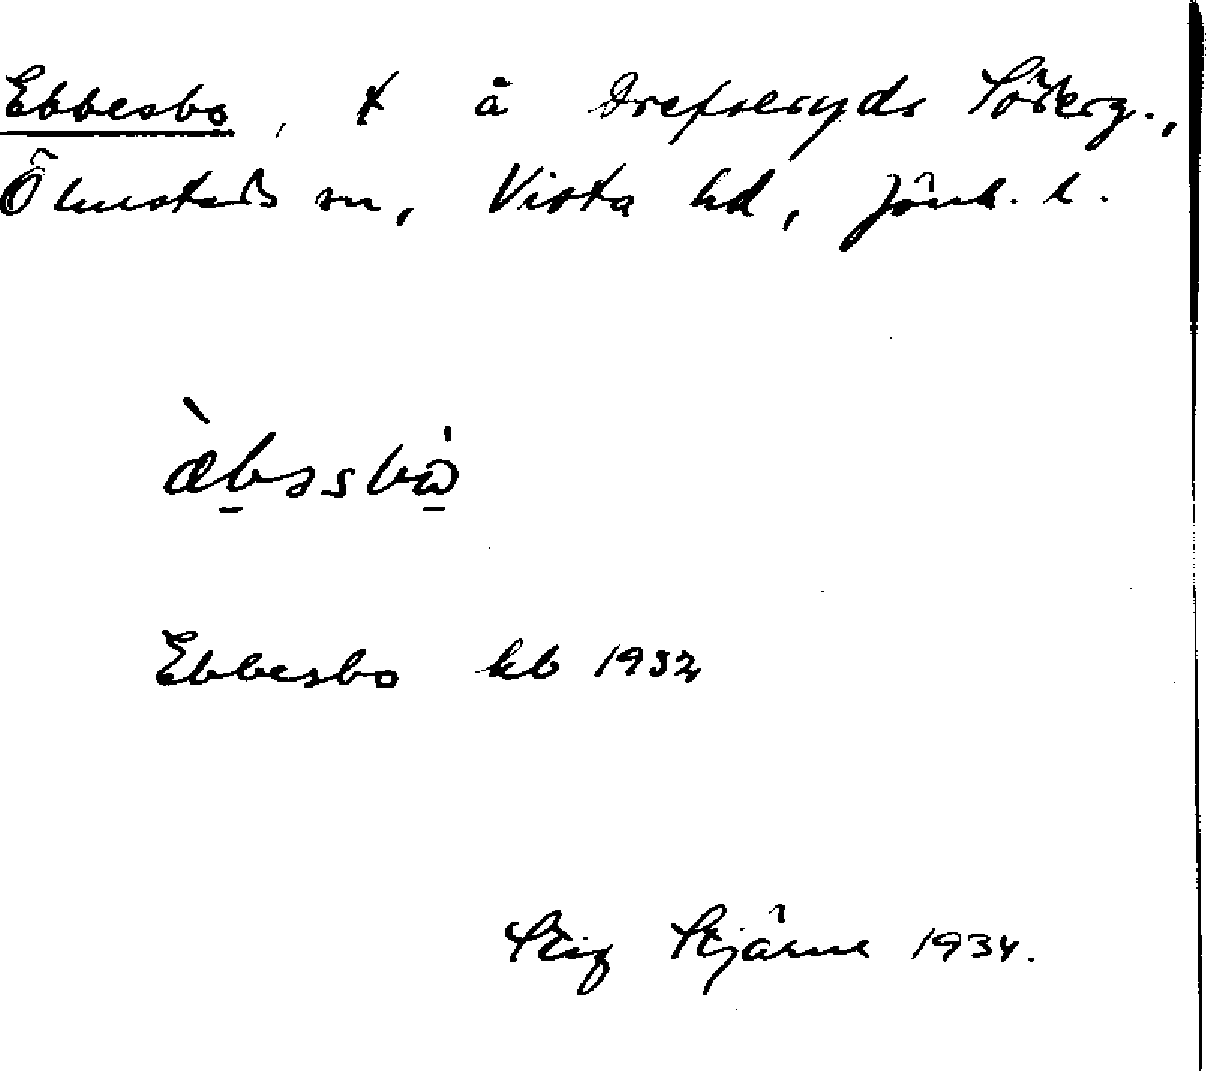 Ebbesbo, t å Drefseryds Söderg.,
Ölmstads sn, Vista hd, Jönk. l.
Ebbesbo kb 1932
Stig Stjärne 1934.